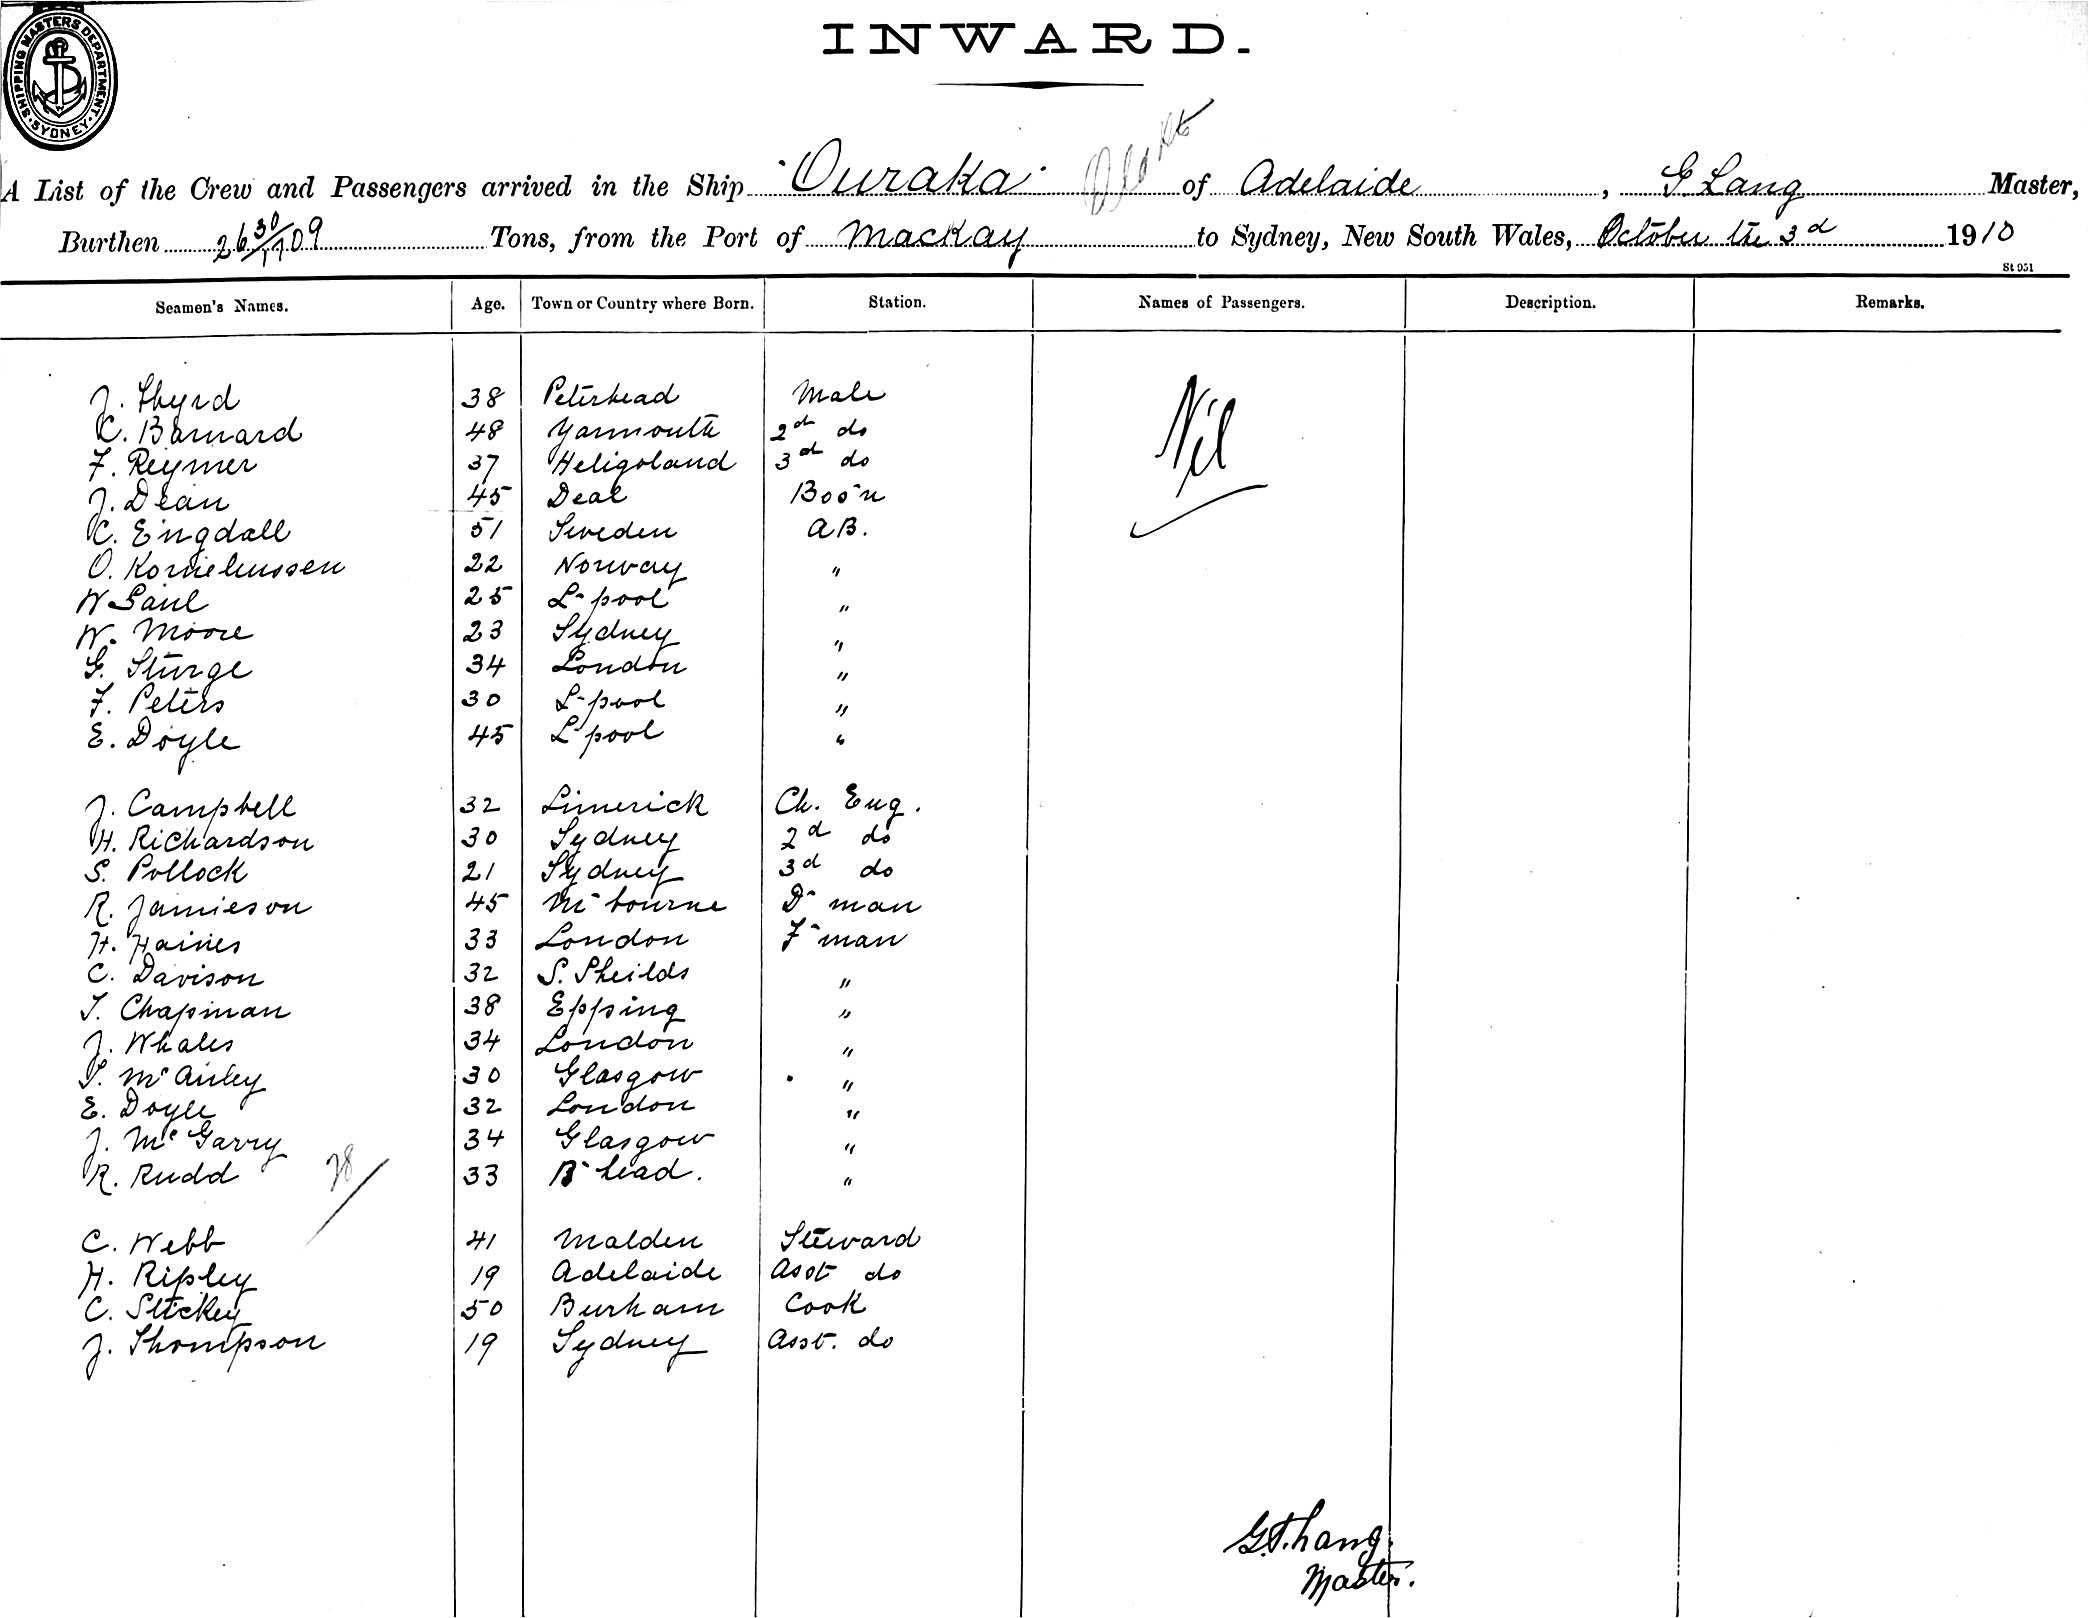 SHIPPING MASTERS DEPARTMENT · SYDNEY ·
INWARD.
A List of the Crew and Passengers arrived in the Ship "Ouraka" of Adelaide, G Lang Master,
Burthen Tons, from the Port of Mackay to Sydney, New South Wales, October the 3d 1910
St 951
Seamen's Names. Age. Town or Country where Born. Station. Names of Passengers. Description. Remarks.
J. 38 Peterhead Mate
C. Barnard 48 Yarmouth 2nd do
F. Reymer 37 Heligoland 3rd do
Nil
J. Dean 45 Deal Bos'n
C. Engdall 51 Sweden AB.
O. Korneliussen 22 Norway "
W 25 L-pool "
W. Moore 23 Sydney "
G. Sturge 34 London "
F. Peters 30 L-pool "
E. Doyle 45 L-pool "
J. Campbell 32 Limerick Ch. Eng.
H. Richardson 30 Sydney 2d do
S. Pollock 21 Sydney 3d do
R. Jamieson 45 M-bourne D-man
H. Haines 33 London F-man
C. Davison 32 S. Sheilds "
T. Chapman 38 Epping "
J. Whales 34 London "
McAuley 30 Glasgow "
E. Doyle 32 London "
J. McGarry 34 Glasgow "
R. Rudd 33 B-head. "
28/
C. Webb 41 Malden Steward
H. Ripley 19 Adelaide Asst do
C. Stickey 50 Burham Cook
J. Thompson 19 Sydney Asst. do
G.T. Lang.
Master.